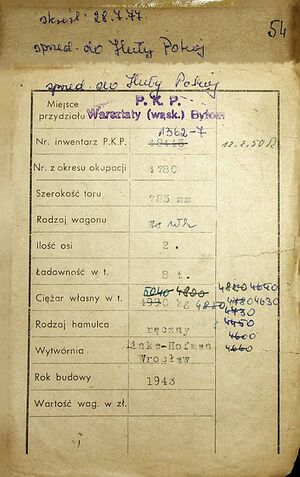 skreśl. 28.7.77.
54
sprzed. do Huty Pokój
sprzed. do Huty Pokój
Miejsce przydziału P. K. P.
Warsztaty (wąsk.) Bytom
1362-7
Nr. inwentarz P.K.P. 12.2.50
Nr. z okresu okupacji 1780
Szerokość toru 785 mm
Rodzaj wagonu
Ilość osi 2.
Ładowność w t. 8 t.
Ciężar własny w t. 5040 4800 4650
kg 4850 4630
4730
4450
4600
4660
Rodzaj hamulca ręczny
Wytwórnia Linke-Hofman
Wrocław
Rok budowy 1943
Wartość wag. w zł.